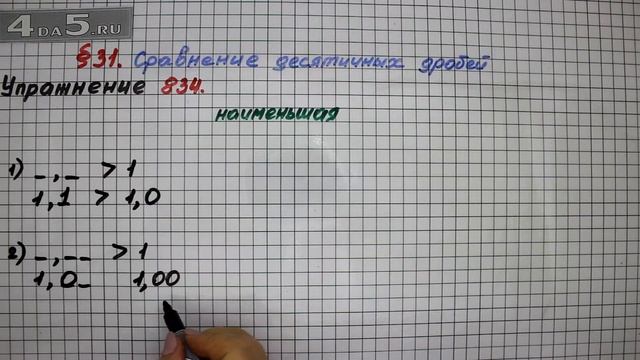 4DA5.RU
§31. Сравнение десятичных дробей
Упражнение 834.
наименьшая
1) _,_ > 1
1,1 > 1,0
2) _,_ _ > 1
1,0_ 1,00